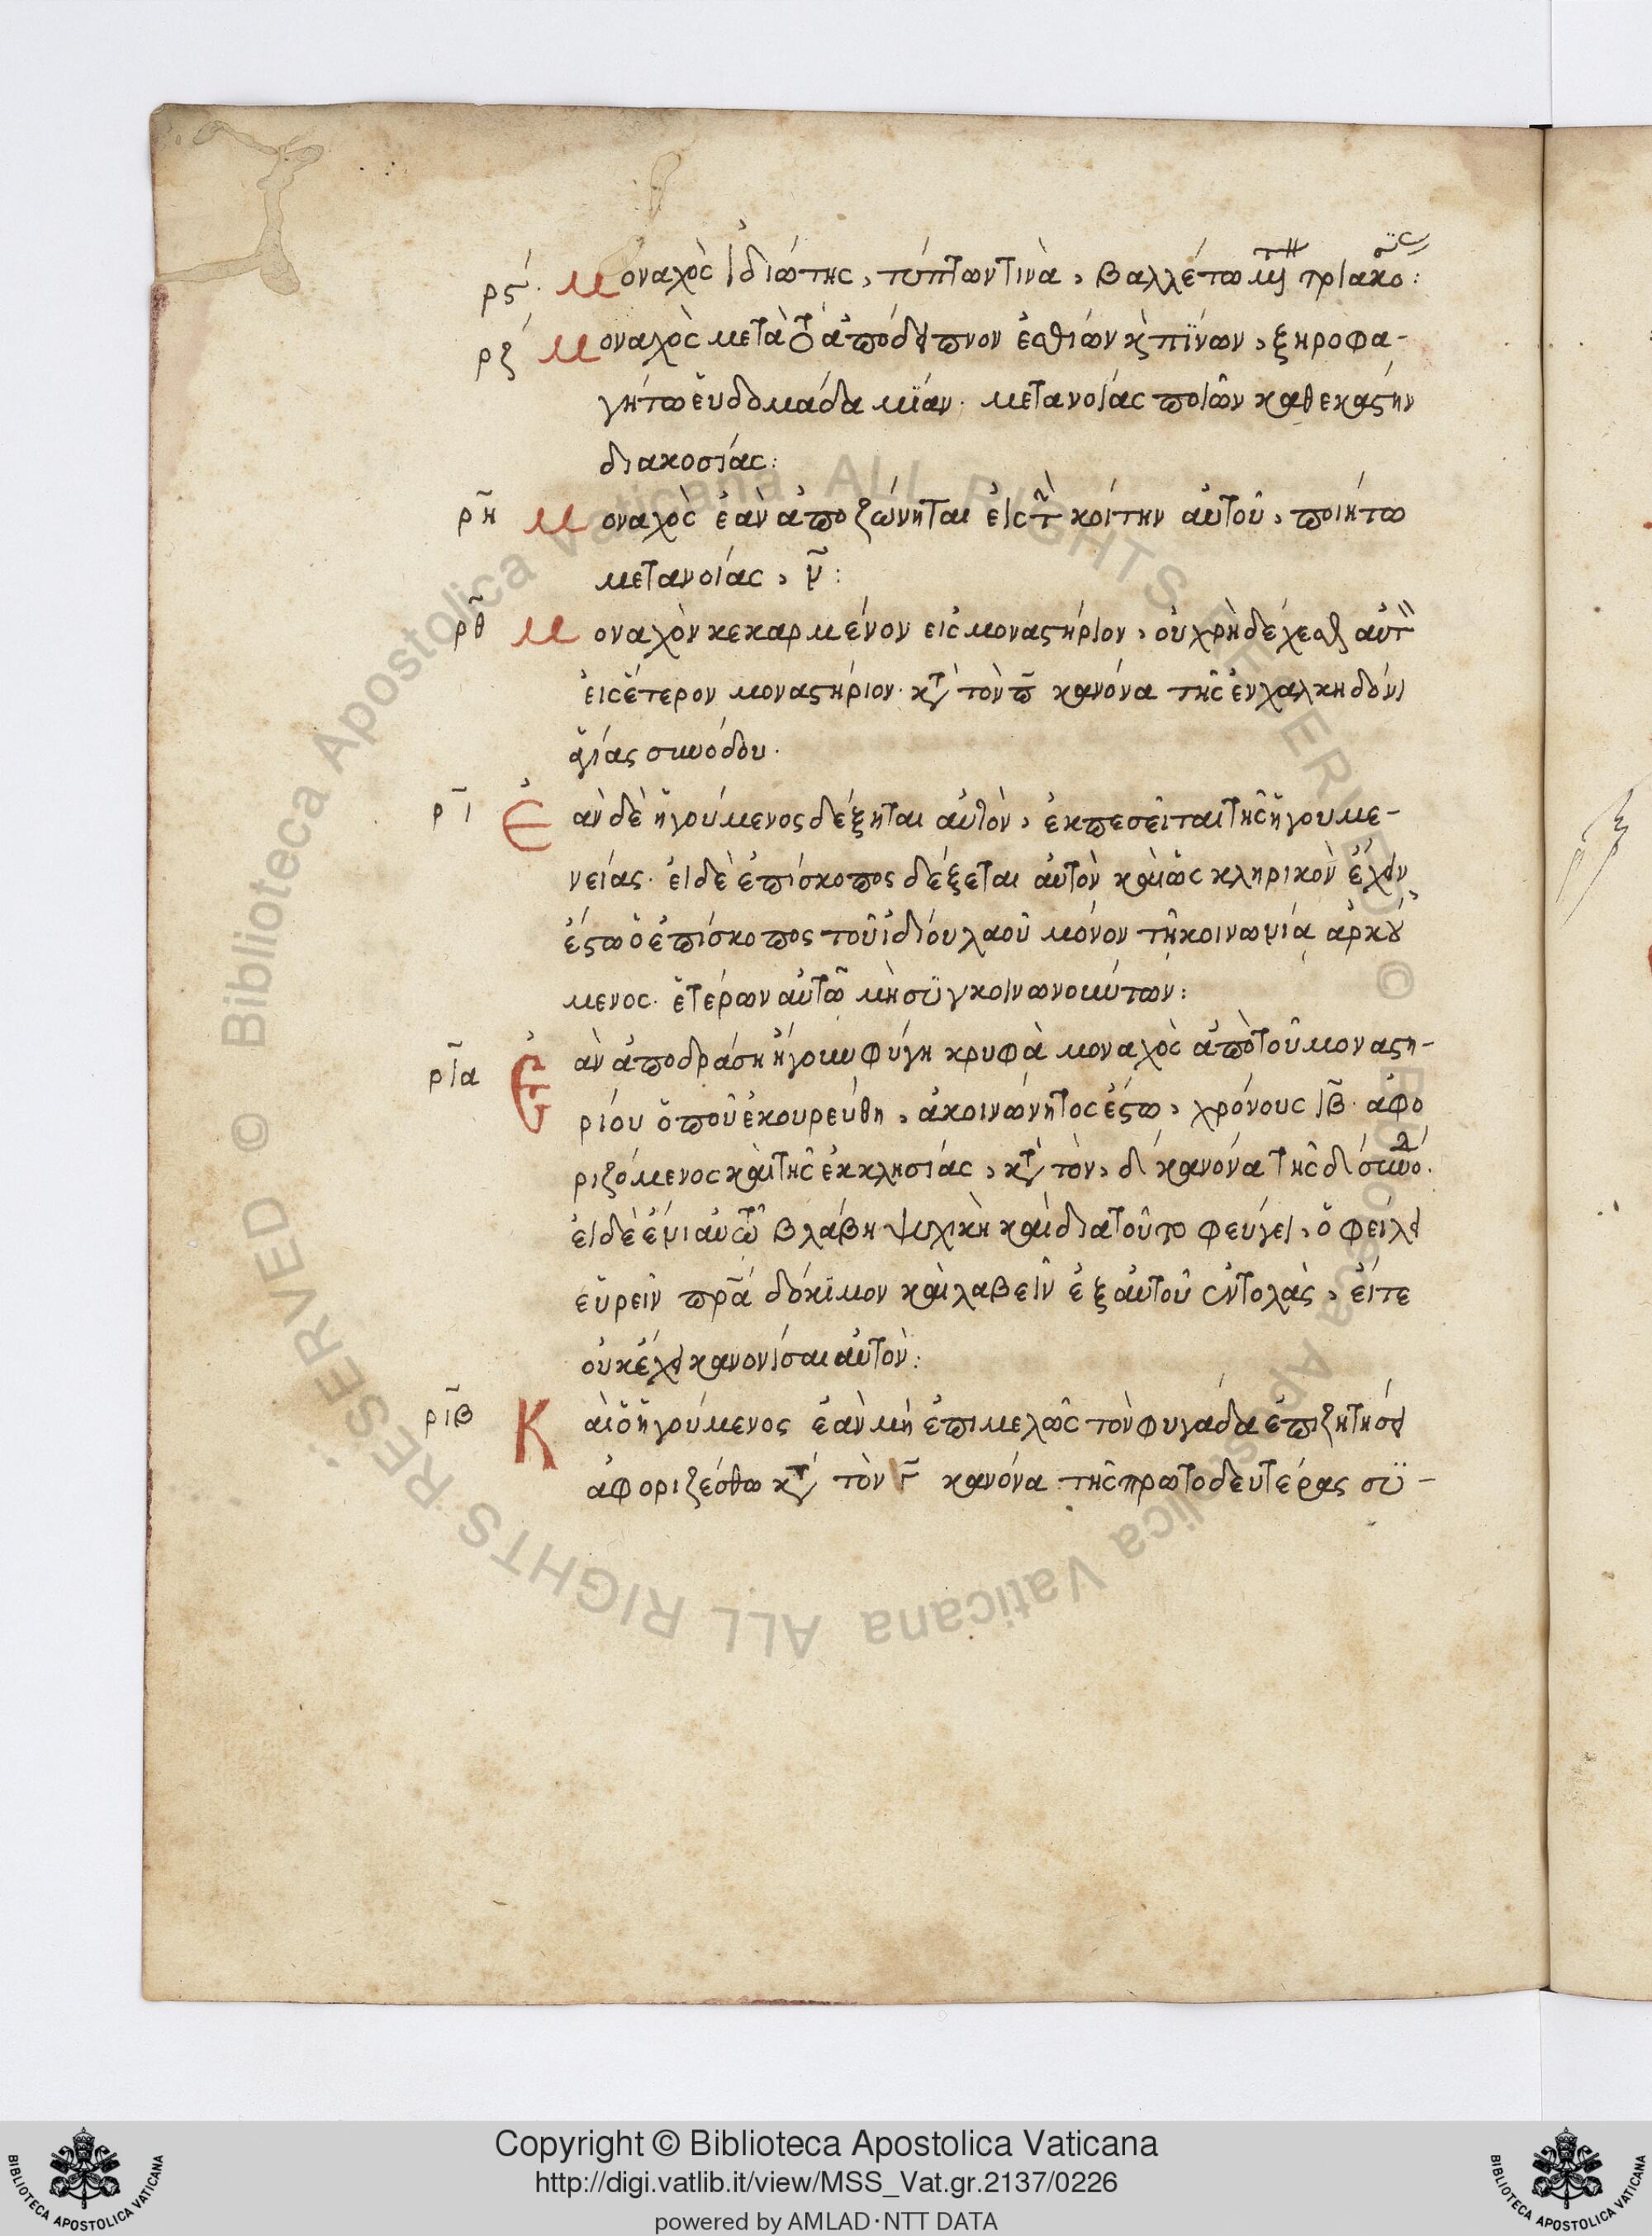 ρϛ́. Μοναχὸς ἰδιώτης, τύπτων τινὰ, βαλλέτω τριακο:
ρζ́ Μοναχὸς μετὰ τὸ ἀπόδειπνον ἐσθιών κ̀ πϊνών, ξηροφα-
γήτω εὐδομάδα μϊάν. μετανοίας ποιῶν καθεκάστην
διακοσίας:
ρη̃ Μοναχὸς ἐὰν ἀποζώνηται εἰς τ̀ κοίτην αὐτοῦ, ποιήτω
μετανοίας, ν̃:
ρθ̃ Μοναχὸν κεκαρμένον εἰς μοναστήριον, οὐ χρὴ δέχεσθαι αὐτ
εἰς ἕτερον μοναστήριον. κατ τὸν π̃ κανόνα τῆς ἐν χαλκηδόνι
ἁγίας συνόδου.
ρ̃ι Ἐὰν δὲ ἡγούμενος δέξηται αὐτὸν, ἐκπεσεῖται τῆς ἡγουμε-
νείας. εἰ δὲ ἐπίσκοπος δέξεται αὐτὸν καὶ ὡς κληρικὸν ἔχειν,
ἔστω ὁ ἐπίσκοπος τοῦ ἰδίου λαοῦ μόνον τῇ κοινωνίᾳ ἀρκού
μενος. ἑτέρων αὐτῶ μὴ σϋγκοινωνούντων:
ρῖα Ἐὰν ἀποδράση ἤγουν φύγη κρυφὰ μοναχὸς ἀπὸ τοῦ μοναστη-
ρίου ὁποῦ ἐκουρεύθη, ἀκοινώνητος ἔστω, χρόνους ιβ̃. ἀφο
ριζόμενος καὶ τῆς ἐκκλησίας, κατ τὸν, δ́ κανόνα τῆς δ́ συνό.
εἰ δὲ ἔνι αὐτῶ βλάβη ψυχικὴ καὶ διατοῦτο φεύγει, ὀφείλει
εὑρεῖν πρ̃ά δόκϊμον καὶ λαβεῖν ἐξ αὐτοῦ ἐντολὰς, εἴτε
οὐκ ἔχει κανονίσαι αὐτὸν:
ρῖβ Καὶ ὁ ἡγούμενος ἐὰν μὴ ἐπιμελῶς τὸν φυγάδα ἐπιζητήσει
ἀφοριζέσθω κατ τὸν γ̃ κανόνα τῆς πρωτοδευτέρας σϋ-
Copyright © Biblioteca Apostolica Vaticana
http://digi.vatlib.it/view/MSS_Vat.gr.2137/0226
powered by AMLAD·NTT DATA
BIBLIOTECA APOSTOLICA VATICANA
BIBLIOTECA APOSTOLICA VATICANA
© Biblioteca Apostolica Vaticana ALL RIGHTS RESERVED
© Biblioteca Apostolica Vaticana ALL RIGHTS RESERVED